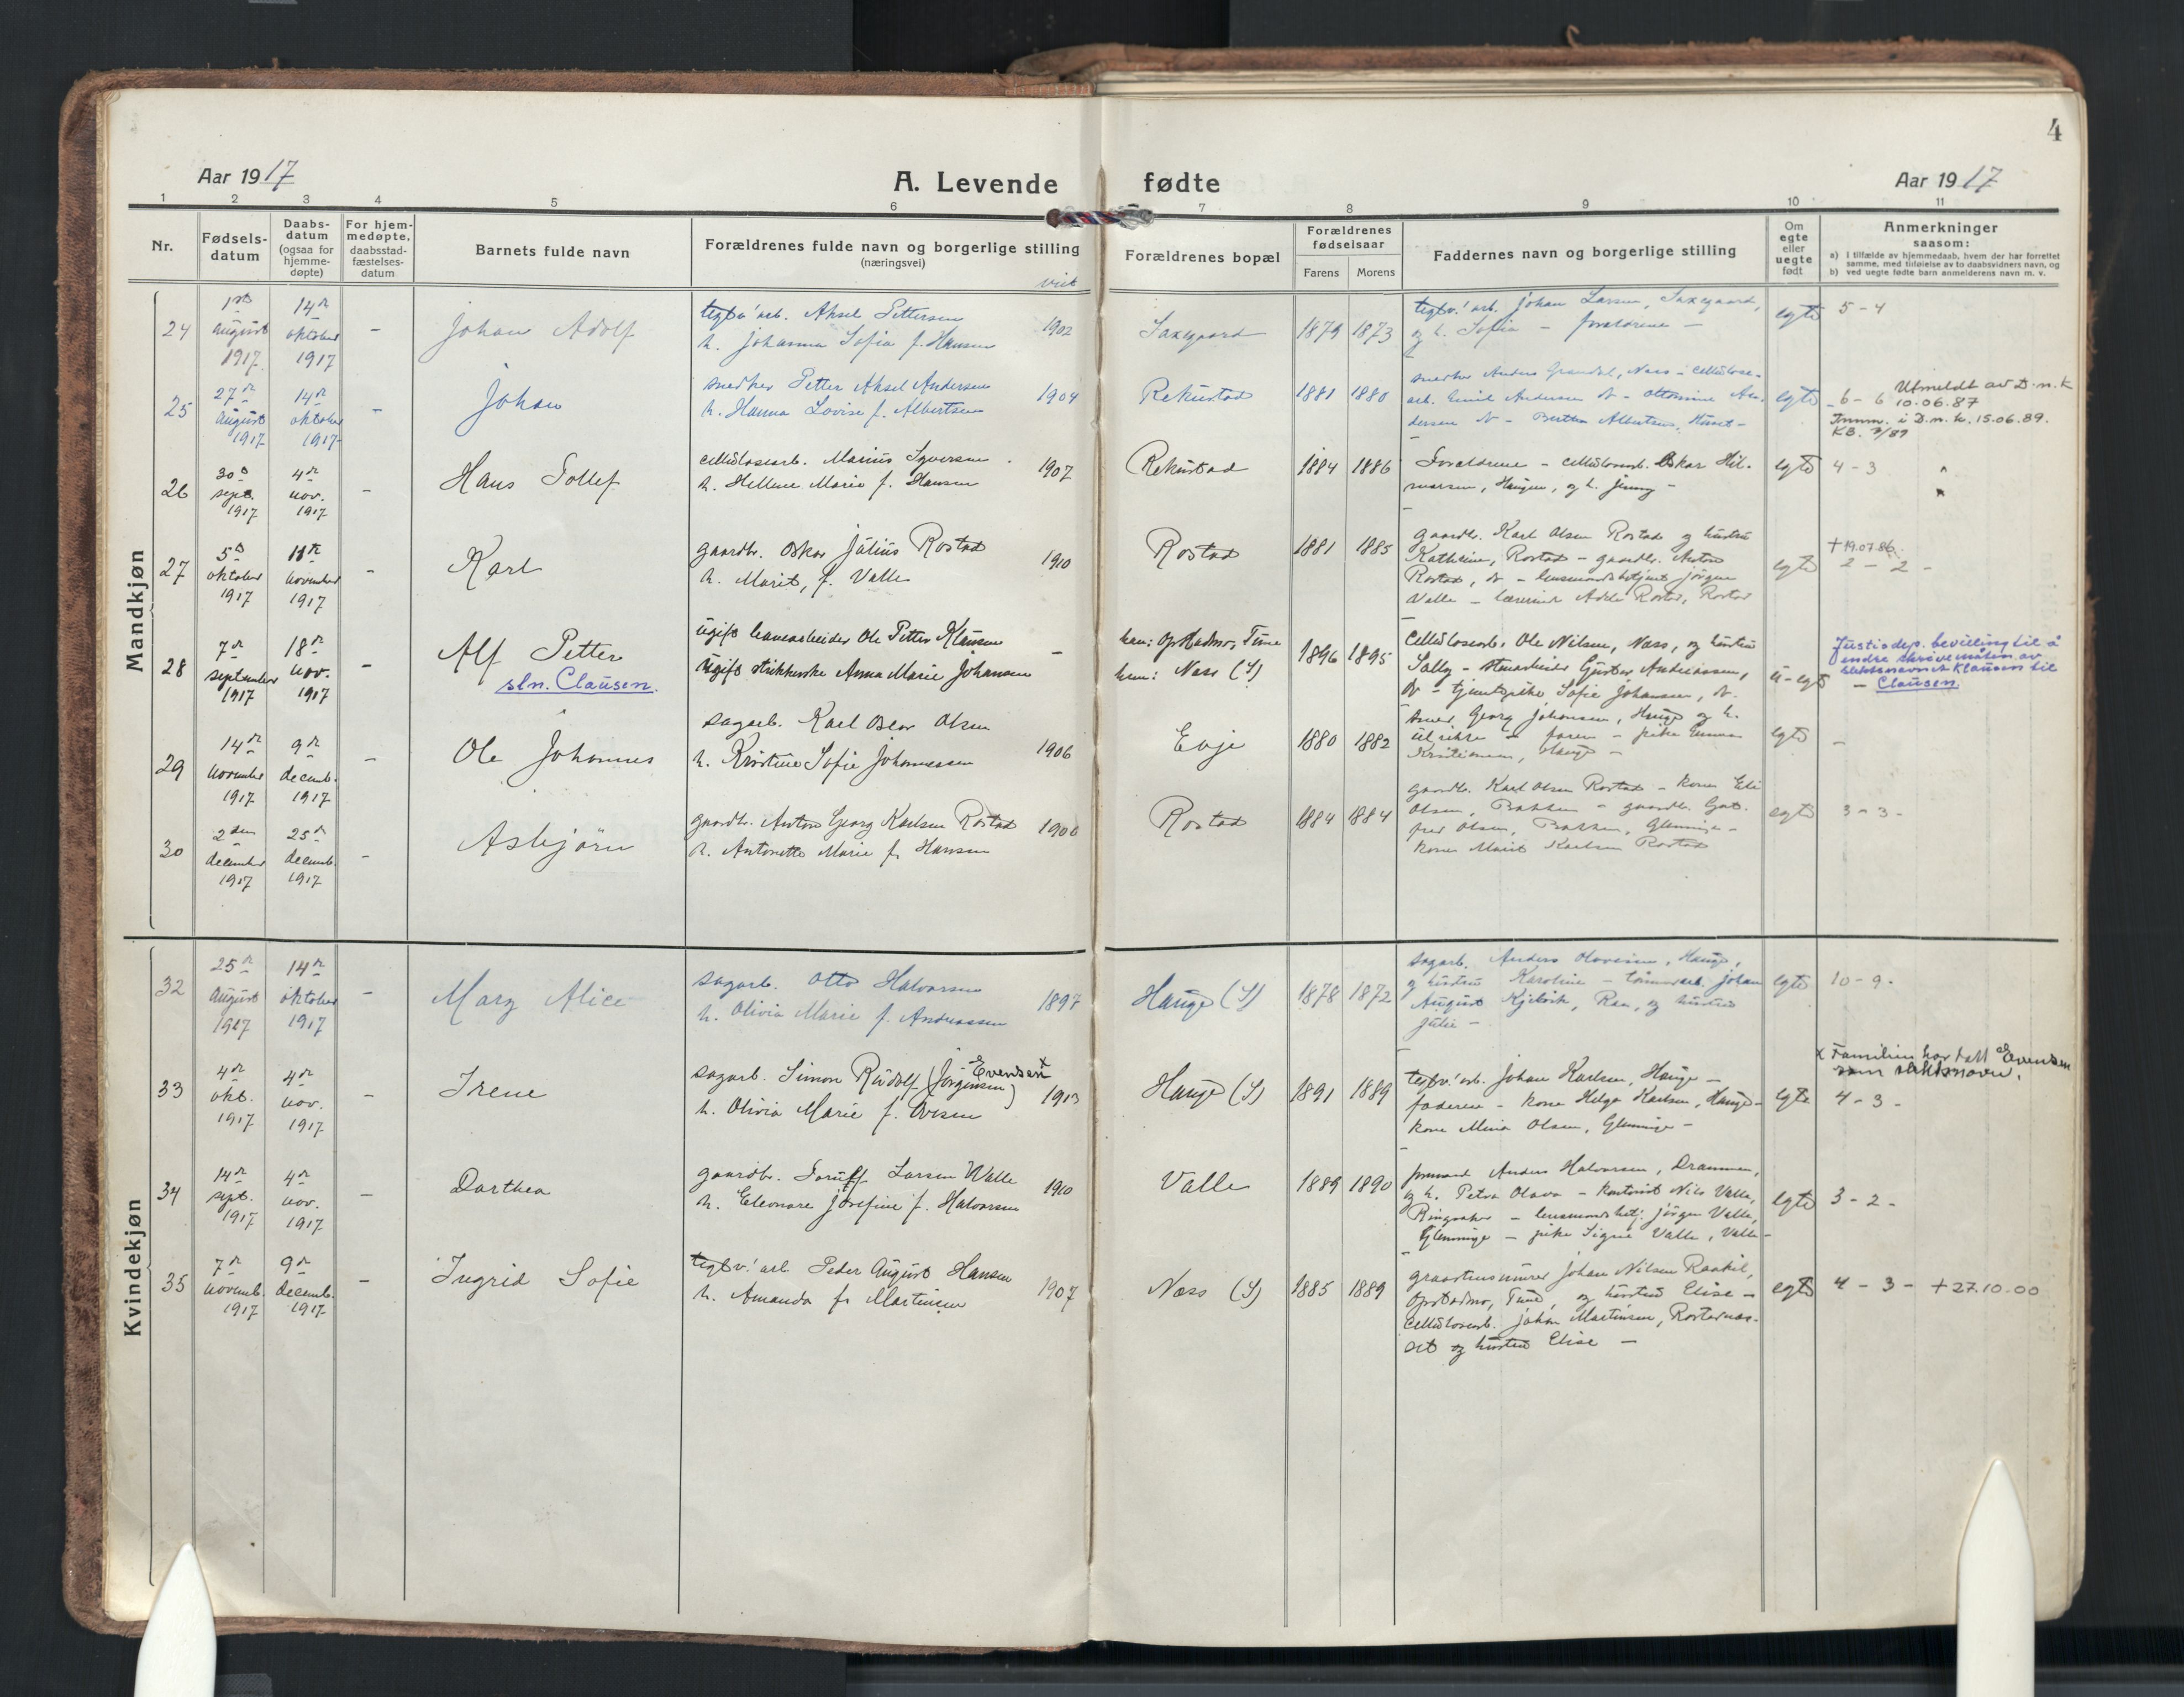 4
Aar 1917
A. Levende fødte
Aar 1917
1 2 3 4 5 6 7 8 9 10 11
Nr.
Fødsels-
datum
Daabs-
datum
(ogsaa for
hjemme-
døpte)
For hjem-
medøpte,
daabsstad-
fæstelses-
datum
Barnets fulde navn
Forældrenes fulde navn og borgerlige stilling
(næringsvei)
viet
Forældrenes bopæl
Forældrenes
fødselsaar
Farens Morens
Faddernes navn og borgerlige stilling
Om
egte
eller
uegte
født
Anmerkninger
saasom:
a) I tilfælde av hjemmedaab, hvem der har forrettet
samme, med tilføielse av to daabsvidners navn, og
b) ved uegte fødte barn anmelderens navn m. v.
Mandkjøn
24
1ste
august
1917
14de
oktober
1917
-
Johan Adolf
teglv.arb. Aksel Pettersen
h. Johanna Sofia f. Hansen
1902
Saxegaard
1879 1873
teglv.arb. Johan Larsen, Saxegaard,
og h. Sofia - forældrene -
egte
5 - 4
25
27de
august
1917
14de
oktober
1917
-
Johan
snedker Petter Aksel Andersen
h. Hanna Lovise f. Albertsen
1904
Rekustad
1881 1880
snedker Anders Grandal, Næss - cellulose-
arb. Emil Andersen N - Ottomine An-
dersen N - Bertha Albertsen,
egte
- 6 - 6
Utmeldt av D.n.k
10.06.87
Innm. i D.n.k. 15.06.89.
KB. 7/89
26
30te
sept.
1917
4de
nov.
1917
-
Hans Tollef
cellulosearb. Marius Syversen
h. Hellene Marie f. Hansen
1907
Rekustad
1884 1886
Forældrene - cellulosearb. Oskar Hil-
marsen, Haugen, og h. Jenny -
egte
4 - 3
27
5te
oktober
1917
11te
november
1917
-
Karl
gaardbr. Oskar Julius Rostad
h. Marit, f. Valle
1910
Rostad
1881 1885
gaardbr. Karl Olsen Rostad og hustru
Kathrine, Rostad - gaardbr. Anton
Rostad, N - lensmandsbetjent Jørgen
Valle - lærerinde Adele Rostad, Rostad
egte
† 19.07.86.
2 - 2 -
28
7de
september
1917
18de
nov.
1917
-
Alf Petter
sln. Clausen.
ugift banearbeider Ole Petter Klausen
ugift strikkerske Anna Marie Johansen
-
han: Opstadmo, Tune
hun: Næss (S)
1896 1895
cellulosearb. Ole Nilsen, Næss, og hustru
Sally - stenarbeider Gustav Andreassen,
N - tjenestepike Sofie Johansen, N.
u-egte
Justisdep. bevilling til å
endre skrivemåten av
slektsnavnet Klausen til
- Clausen.
29
14de
november
1917
9de
decemb.
1917
-
Ole Johannes
sagarb. Karl Oscar Olsen
h. Kristine Sofie Johannessen
1906
Evje
1880 1882
smed Georg Johansen, Hauge og h.
Ulrikke - faren - pike Emma
Kristiansen, Hauge -
egte
-
30
2den
december
1917
25de
decemb.
1917
-
Asbjørn
gaardbr. Anton Georg Karlsen Rostad
h. Antonette Marie f. Hansen
1906
Rostad
1884 1884
gaardbr. Karl Olsen Rostad - kone Eli
Olsen, Bakken - gaardbr. Got-
fred Olsen, Bakken, Glemminge -
kone Marit Karlsen Rostad
egte
3 - 3 -
Kvindekjøn
32
25de
august
1917
14de
oktober
1917
-
Mary Alice
sagarb. Otto Halvorsen
h. Olivia Marie f. Andreassen
1897
Hauge (S)
1878 1872
sagarb. Anders Olavesen, Hauge,
og hustru Karoline - tømmerarb. Johan
August Kjelvik, Raa, og hustru
Julie -
egte
10 - 9 -
33
4de
okt.
1917
4de
nov.
1917
Irene
sagarb. Simon Rudolf (Jørgensen) Evensen x
h. Olivia Marie f. Evensen
1913
Hauge (S)
1891 1889
teglv.arb. Johan Karlsen, Hauge -
faderen - kone Helga Karlsen, Hauge -
kone Mina Olsen, Glemminge -
egte
x Familien har tatt Evensen
som slektsnavn.
4 - 3 -
34
14de
sept.
1917
4de
nov.
1917
-
Dorthea
gaardbr. Toruff Larsen Valle
h. Eleonore Josefine f. Halvorsen
1910
Valle
1889 1890
formand Anders Halvorsen, Drammen,
og h. Petra Olava - kontorist Nils Valle,
Ringsaker - lensmandsbetj. Jørgen Valle,
Glemminge - pike Signe Valle, Valle -
egte
3 - 2 -
35
7de
novemb.
1917
9de
decemb.
1917
-
Ingrid Sofie
teglv.arb. Peder August Hansen
h. Amanda f. Martinsen
1907
Næss (S)
1885 1889
graastensmurer Johan Nilsen Raakil,
Opstadmo, Tune, og hustru Elise -
cellulosearb. Johan Martinsen, Rostadnæs-
set og hustru Elise -
egte
4 - 3 - † 27.10.00